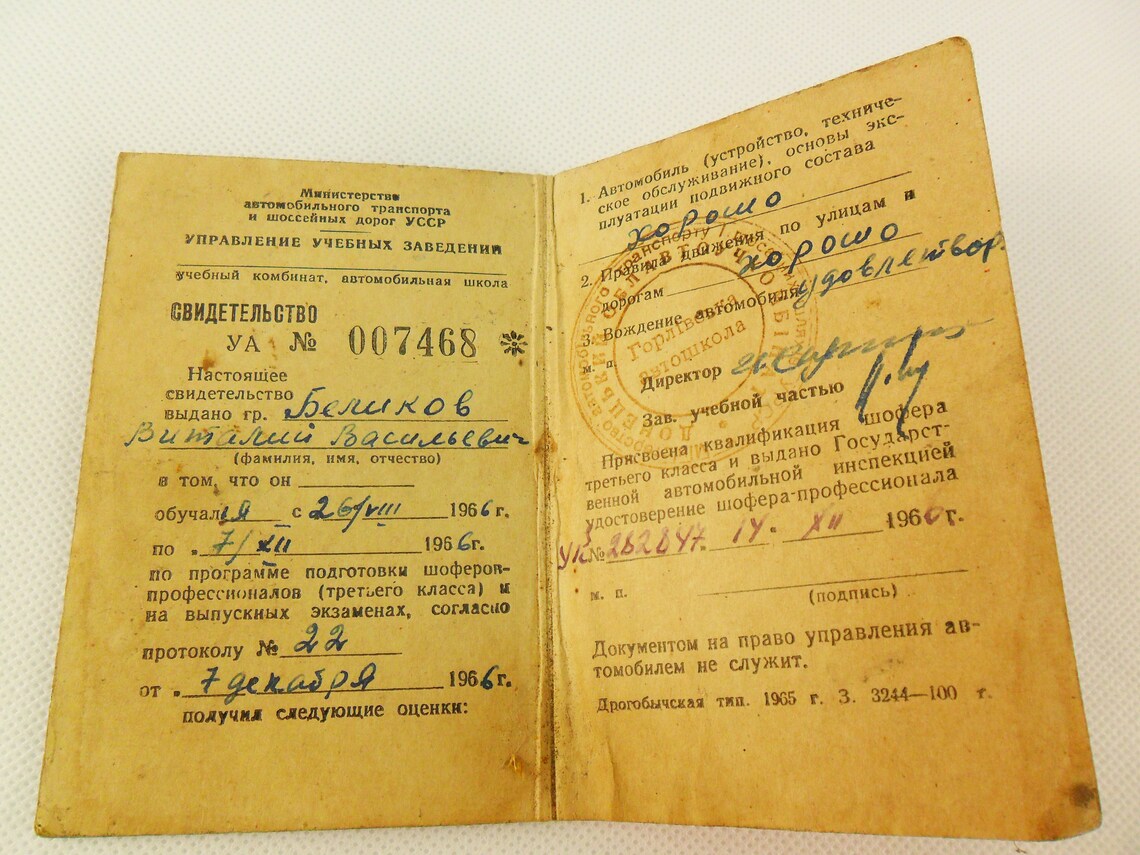 Министерство
автомобильного транспорта
и шоссейных дорог УССР
УПРАВЛЕНИЕ УЧЕБНЫХ ЗАВЕДЕНИЙ
учебный комбинат, автомобильная школа
СВИДЕТЕЛЬСТВО
УА № 007468
Настоящее
свидетельство
выдано гр. Беликов
Виталий Васильевич
(фамилия, имя, отчество)
в том, что он
обучался с 26/VIII 1966 г.
по „ 7/XII 1966 г.
по программе подготовки шоферов-
профессионалов (третьего класса) и
на выпускных экзаменах, согласно
протоколу № 22
от „ 7 декабря 1966 г.
получил следующие оценки:
1. Автомобиль (устройство, техниче-
ское обслуживание), основы экс-
плуатации подвижного состава
хорошо
2. Правила движения по улицам и
дорогам хорошо
3. Вождение автомобиля удовлетвор.
м. п.
Директор
Зав. учебной частью
Горлівська
автошкола
Присвоена квалификация шофера
третьего класса и выдано Государст-
венной автомобильной инспекцией
удостоверение шофера-профессионала
УК № 282847 „ 14 " XII 1966 г.
м. п.
(подпись)
Документом на право управления ав-
томобилем не служит.
Дрогобычская тип. 1965 г. З. 3244—100 т.